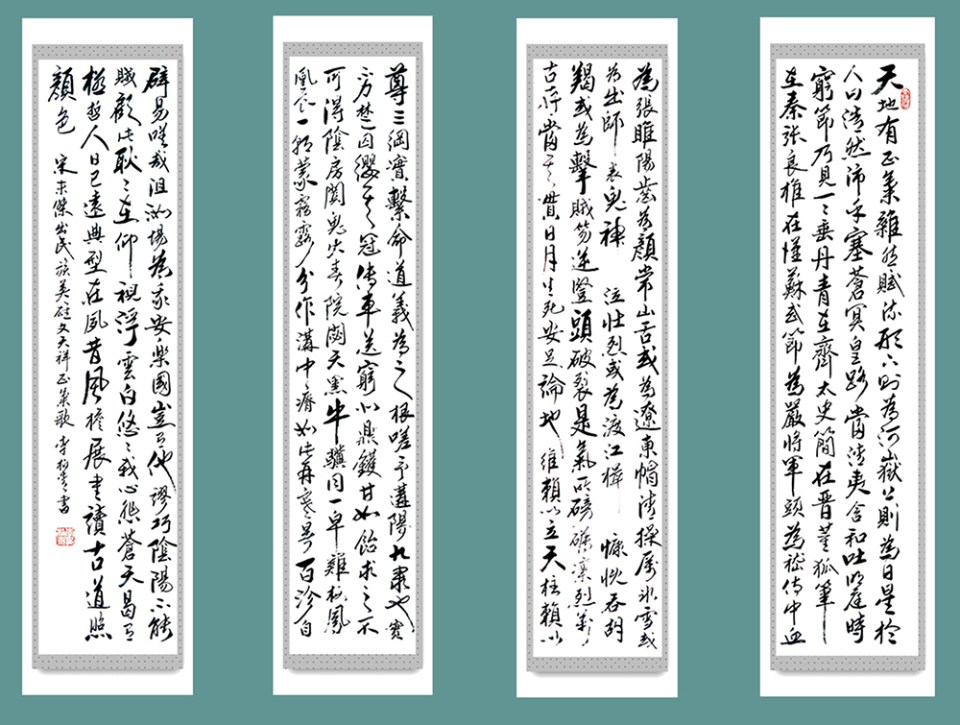 天地有正氣雜然賦流形下則為河嶽上則為日星於
人曰浩然沛乎塞蒼冥皇路當清夷含和吐明庭時
窮節乃見一一垂丹青在齊太史簡在晉董狐筆
在秦張良椎在漢蘇武節為嚴將軍頭為嵇侍中血
為張睢陽齒為顏常山舌或為遼東帽清操厲冰雪或
為出師表鬼神泣壯烈或為渡江楫慷慨吞胡
羯或為擊賊笏逆豎頭破裂是氣所磅礴凜烈萬
古存當其貫日月生死安足論地維賴以立天柱賴以
尊三綱實繫命道義為之根嗟予遘陽九隸也實
不力楚囚纓其冠傳車送窮北鼎鑊甘如飴求之不
可得陰房闃鬼火春院閟天黑牛驥同一皁雞棲鳳
凰食一朝蒙霧露分作溝中瘠如此再寒暑百沴自
辟易嗟哉沮洳場為我安樂國豈有他謬巧陰陽不能
賊顧此耿〻在仰視浮雲白悠〻我心悲蒼天曷有
極哲人日已遠典型在夙昔風檐展書讀古道照
顏色 宋末傑出民族英雄文天祥正氣歌 書